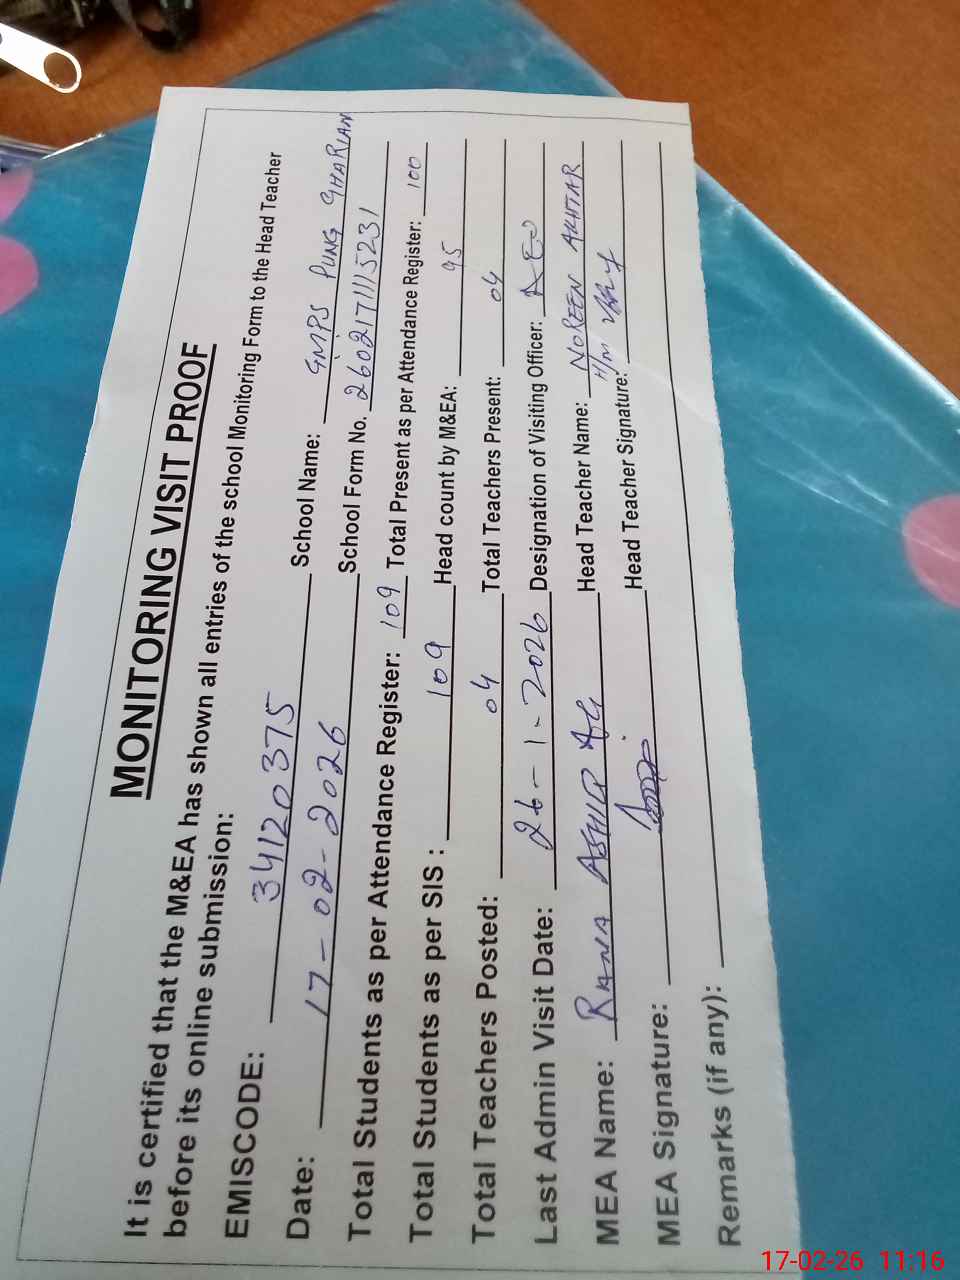 MONITORING VISIT PROOF
It is certified that the M&EA has shown all entries of the school Monitoring Form to the Head Teacher
before its online submission:
EMISCODE: 34120375 School Name: GMPS PUNG GHARIAN
Date: 17-02-2026 School Form No. 2602171115231
Total Students as per Attendance Register: 109 Total Present as per Attendance Register: 100
Total Students as per SIS : 109 Head count by M&EA: 95
Total Teachers Posted: 04 Total Teachers Present: 04
Last Admin Visit Date: 26-1-2026 Designation of Visiting Officer: AEO
MEA Name: RANA ASHIQ Ali Head Teacher Name: NOREEN AKHTAR
MEA Signature: Head Teacher Signature: H/M
Remarks (if any):
17-02-26 11:16